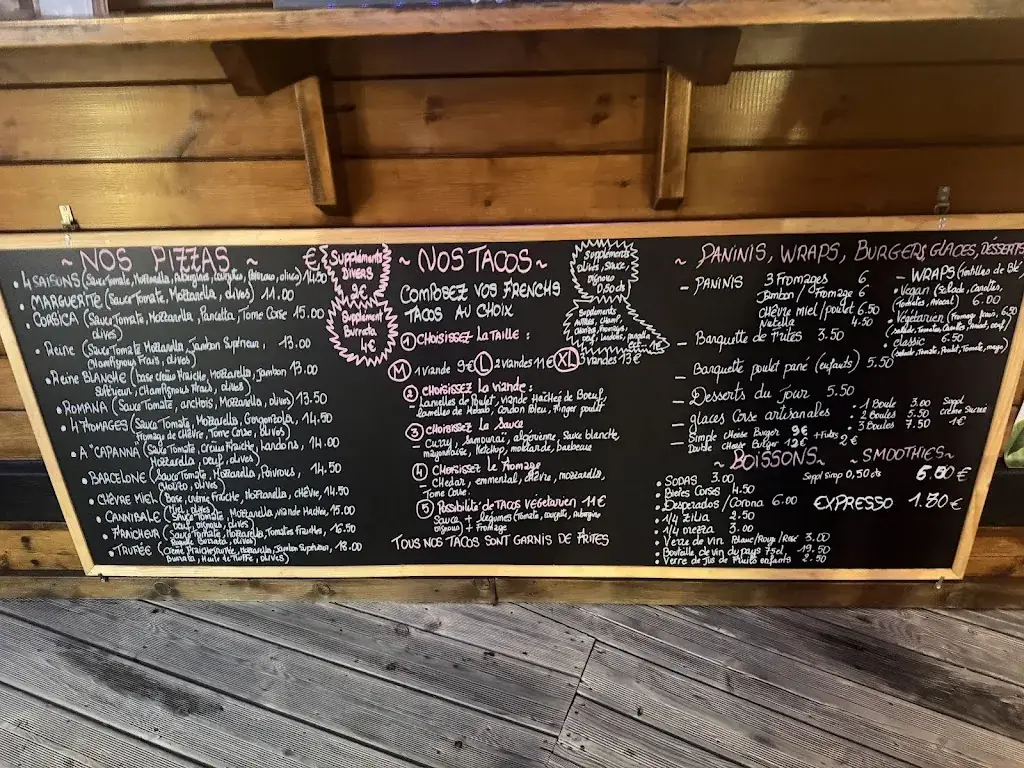 ~ NOS PIZZAS ~ €
• 4 SAISONS (Sauce Tomate, Mozzarella, Aubergines, Courgettes, Poivrons, olives) 14.50
• MARGUERITE (Sauce Tomate, Mozzarella, olives) 11.00
• CORSICA (Sauce Tomate, Mozzarella, Pancetta, Tome Corse 15.00
olives)
• Reine (Sauce Tomate Mozzarella, Jambon Supérieur, 13.00
Champignons Frais, olives)
• Reine BLANCHE (base crème Fraîche, Mozzarella, Jambon 13.00
Supérieur, Champignons Frais, olives)
• ROMANA (Sauce Tomate, anchois, Mozzarella, olives) 13.50
• 4 FROMAGES (Sauce Tomate, Mozzarella, Gorgonzola, 14.50
Fromage de Chèvre, Tome Corse, olives)
• A "CAPANNA (Sauce Tomate, Crème Fraîche, Lardons, 14.00
Mozzarella, oeuf, olives)
• BARCELONE (Sauce Tomate, Mozzarella, Poivrons, 14.50
Chorizo, olives)
• CHÈVRE MIEL (Base, crème Fraîche, Mozzarella, chèvre, 14.50
Miel, olives)
• CANNIBALE (Sauce Tomate, Mozzarella, viande Hachée, 15.00
oeuf, oignons, olives)
• FRAICHEUR (Sauce Tomate, Mozzarella, Tomates Fraîches, 16.50
Roquette Burrata, olives)
• TRUFÉE (Crème Fraîche truffée, Mozzarella, Jambon Supérieur, 18.00
Burrata, Huile de Truffe, olives)
Suppléments
DIVERS
2€
Supplément
Burrata
4€
~ NOS TACOS ~
COMPOSEZ VOS FRENCHS
TACOS AU CHOIX
Suppléments
olives, Sauce,
oignons
0.50 cts
Suppléments
AUTRES
① Choisissez La Taille :
Ⓜ 1 viande 9€ Ⓛ 2 viandes 11€ XL 3 viandes 13€
② Choisissez La viande :
- Lamelles de Poulet, viande Hachée de Boeuf,
Lamelles de Kebab, Cordon Bleu, Finger poulet
③ Choisissez La Sauce
- Curry, Samouraï, algérienne, Sauce blanche,
mayonnaise, Ketchup, moutarde, barbecue
④ Choisissez le fromage
- Chedar, emmental, chèvre, mozzarella,
Tome Corse.
⑤ Possibilité de TACOS VÉGÉTARIEN 11€
Sauce + légumes (Tomate, courgette, aubergine
oignons) + Fromage
TOUS NOS TACOS SONT GARNIS DE FRITES
~ PANINIS, WRAPS, BURGERS, GLACES, DÉSSERTS
- PANINIS 3 Fromages 6
Jambon / Fromage 6
Chèvre Miel / poulet 6.50
Nutella 4.50
- Barquette de Frites 3.50
- Barquette poulet pané (enfants) 5.50
- Desserts du Jour 5.50
- glaces Corse artisanales
• 1 Boule 3.00
• 2 Boules 5.50
• 3 Boules 7.50
Suppl
crème Sucrée
1€
- Simple cheese Burger 9€
Double cheese Burger 12€
+ Frites 2€
- WRAPS (Tortillas de Blé)
• Vegan (Salade, Carottes,
Tomates, Avocat) 6.00
• Végétarien (Fromage frais, 6.50
Salade, Tomates, Carottes, Avocat, oeuf)
• Classic 6.50
(Salade, Tomate, Poulet, Tomate, mayo)
~ BOISSONS ~
• SODAS 3.00
Suppl Sirop 0,50 cts
• Bières Corses 4.50
• Desperados / Corona 6.00
• 1/4 Zilia 2.50
• 1/4 orezza 3.00
• Verre de vin Blanc/Rouge/Rosé 3.00
• Bouteille de vin du pays 75cl 19.50
• Verre de Jus de Fruits enfants 2.50
~ SMOOTHIES ~
5.50 €
EXPRESSO 1.80 €